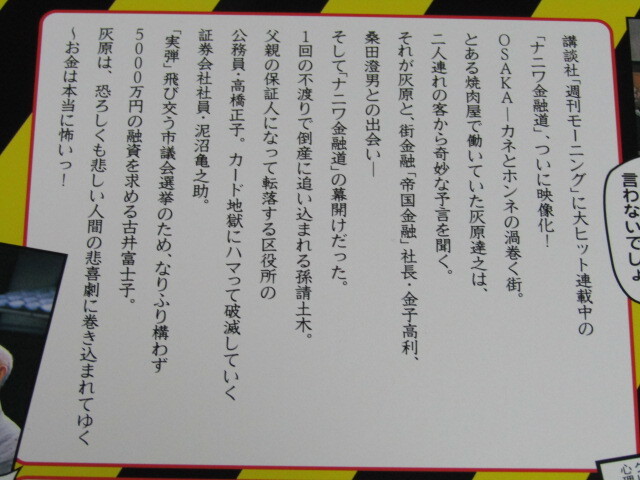 講談社「週刊モーニング」に大ヒット連載中の
「ナニワ金融道」、ついに映像化！
OSAKA―カネとホンネの渦巻く街。
とある焼肉屋で働いていた灰原達之は、
二人連れの客から奇妙な予言を聞く。
それが灰原と、街金融「帝国金融」社長・金子高利、
桑田澄男との出会い―
そして『ナニワ金融道』の幕開けだった。
1回の不渡りで倒産に追い込まれる孫請土木。
父親の保証人になって転落する区役所の
公務員・高橋正子。カード地獄にハマって破滅していく
証券会社社員・泥沼亀之助。
「実弾」飛び交う市議会選挙のため、なりふり構わず
5000万円の融資を求める古井富士子。
灰原は、恐ろしくも悲しい人間の悲喜劇に巻き込まれてゆく
～お金は本当に怖いっ！
言わないでしょ